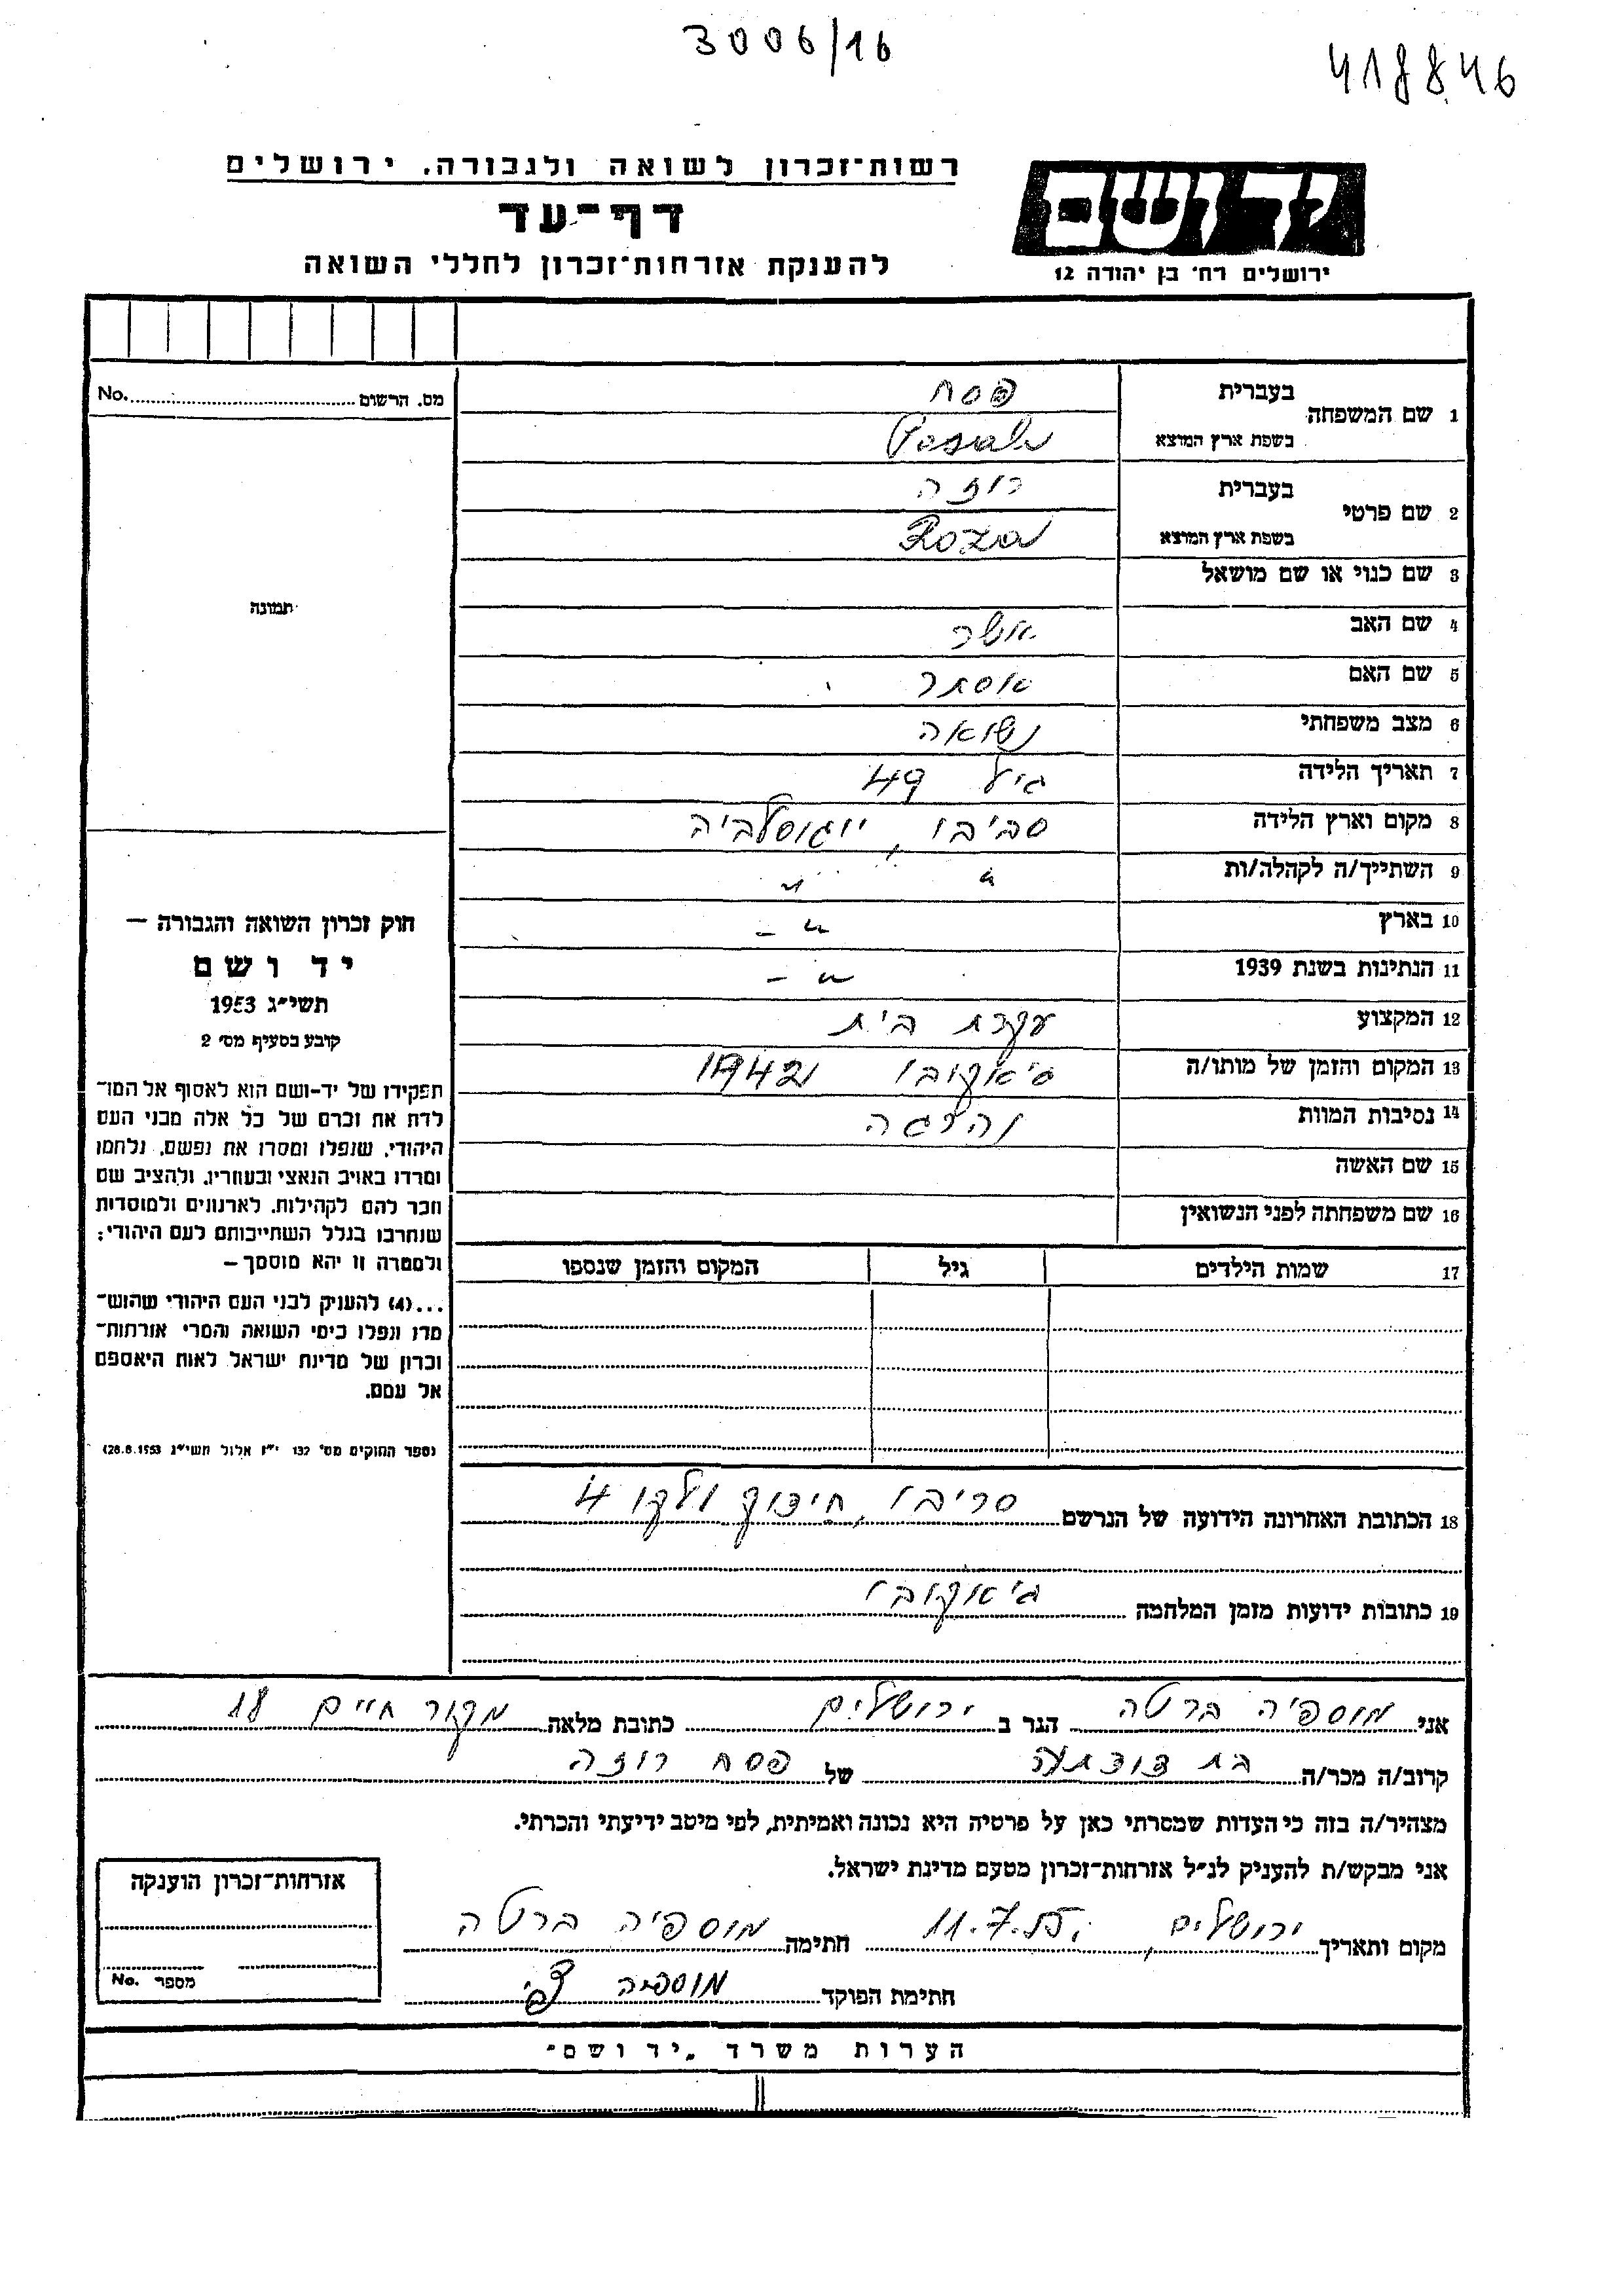 3006/16
418846
רשות־זכרון לשואה ולגבורה. ירושלים
יד ושם
דף־עד
להענקת אזרחות־זכרון לחללי השואה
ירושלים רח׳ בן יהודה 12
מס. הרשום No.
תמונה
1 שם המשפחה
בעברית פסח
בשפת ארץ המוצא Pesah
2 שם פרטי
בעברית רוזה
בשפת ארץ המוצא Roza
3 שם כנוי או שם מושאל
4 שם האב אשר
5 שם האם אסתר
6 מצב משפחתי נשואה
7 תאריך הלידה גיל 49
8 מקום וארץ הלידה יוגוסלביה
9 השתייך/ה לקהלה/ות " "
10 בארץ - " -
11 הנתינות בשנת 1939 - " -
12 המקצוע עקרת בית
13 המקום והזמן של מותו/ה ג'אקובו 1942
14 נסיבות המוות
15 שם האשה
16 שם משפחתה לפני הנשואין
17 שמות הילדים גיל המקום והזמן שנספו
18 הכתובת האחרונה הידועה של הנרשם 4
19 כתובות ידועות מזמן המלחמה ג'אקובו
חוק זכרון השואה והגבורה —
יד ושם
תשי״ג 1953
קובע בסעיף מס׳ 2
תפקידו של יד-ושם הוא לאסוף אל המו־
לדת את זכרם של כל אלה מבני העם
היהודי, שנפלו ומסרו את נפשם, נלחמו
ומרדו באויב הנאצי ובעוזריו, ולהציב שם
וזכר להם לקהילות, לארגונים ולמוסדות
שנחרבו בגלל השתייכותם לעם היהודי;
ולמטרה זו יהא מוסמך —
...(4) להעניק לבני העם היהודי שהוש־
מדו ונפלו בימי השואה והמרי אזרחות־
זכרון של מדינת ישראל לאות היאספם
אל עמם.
(ספר החוקים מס׳ 132 י״ז אלול תשי״ג 28.8.1953)
אני מוספיה ברטה הגר ב ירושלים כתובת מלאה מקור חיים 18
קרוב/ה מכר/ה בת של פסח רוזה
מצהיר/ה בזה כי העדות שמסרתי כאן על פרטיה היא נכונה ואמיתית, לפי מיטב ידיעתי והכרתי.
אני מבקש/ת להעניק לנ״ל אזרחות־זכרון מטעם מדינת ישראל.
מקום ותאריך ירושלים, 11.7.55 חתימה מוספיה ברטה
חתימת הפוקד מוספיה צבי
אזרחות־זכרון הוענקה
מספר No.
הערות משרד „יד ושם"